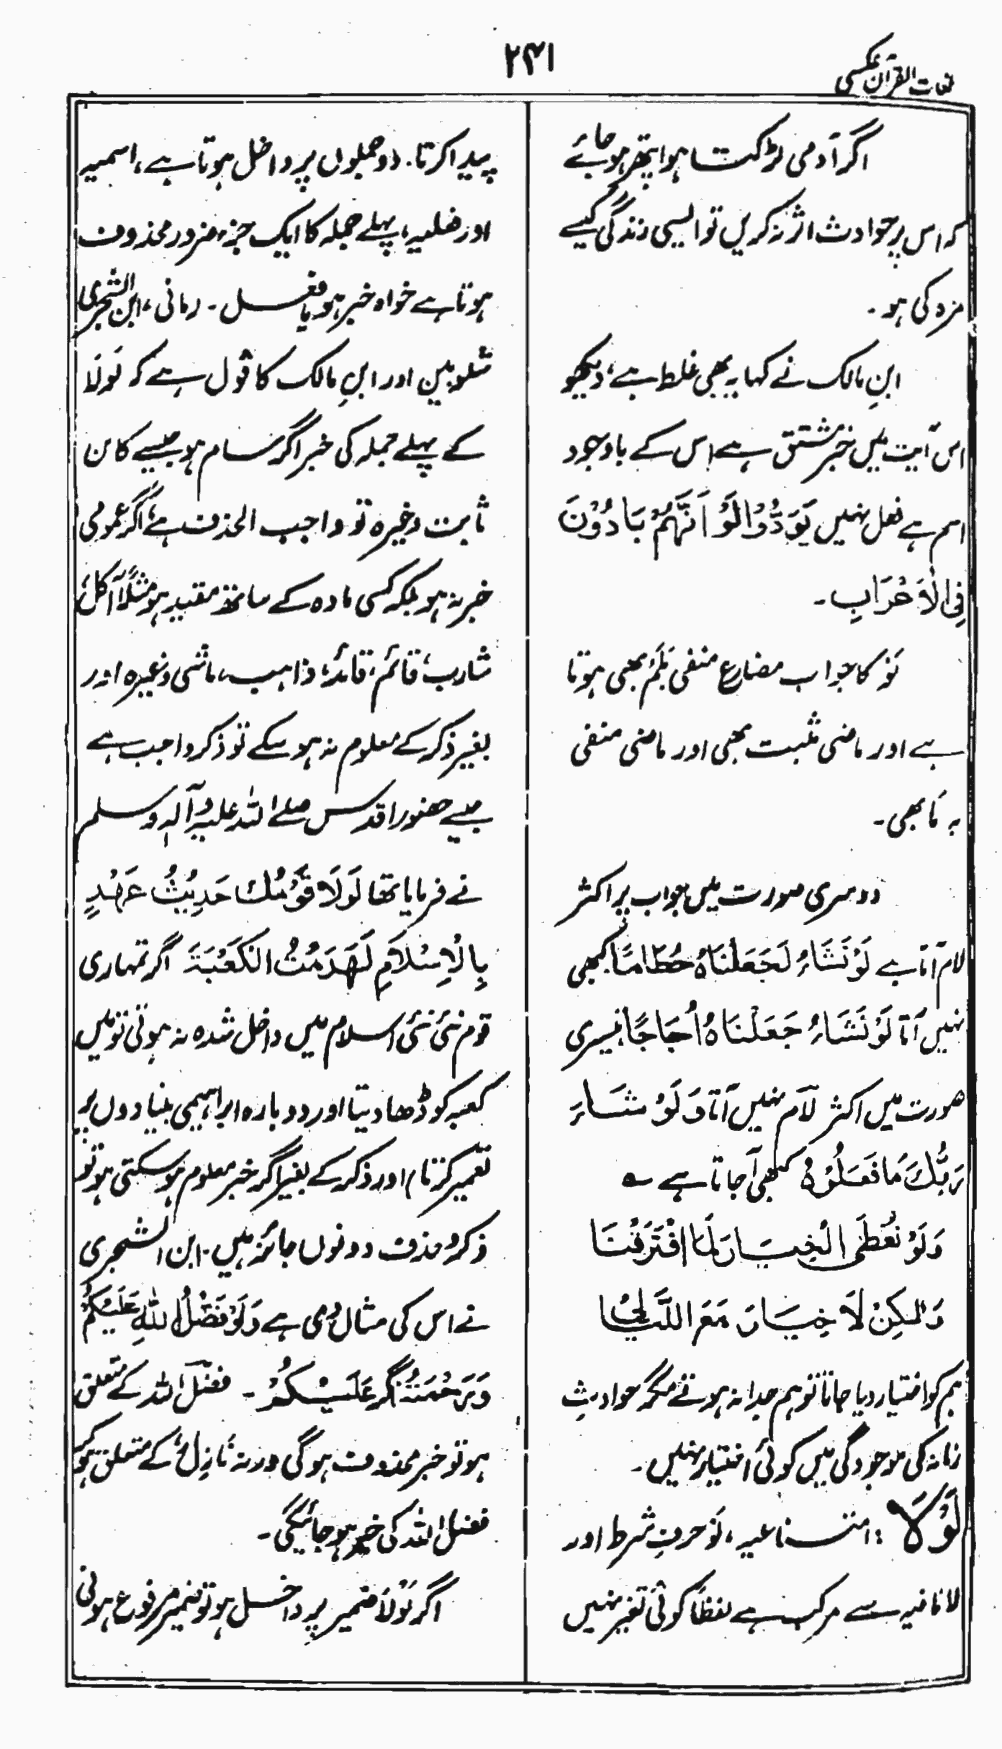 لغات القرآن عکسی
۲۴۱
اگر آدمی لڑکتا ہوا پتھر ہو جائے
کہ اس پر حوادث اثر نہ کریں تو ایسی زندگی کیسے
مزہ کی ہو۔
ابنِ مالک نے کہا یہ بھی غلط ہے، دیکھو
اس آیت میں خبر مشتق ہے اس کے باوجود
اسم ہے فعل نہیں یَوَدُّوْا لَوْ اَنَّہُمْ بَادُوْنَ
فِی الْاَعْرَابِ۔
لَوْ کا جواب مضارع منفی بَلَمْ بھی ہوتا
ہے اور ماضی مثبت بھی اور ماضی منفی
بہ مَا بھی۔
دوسری صورت میں جواب پر اکثر
لام آتا ہے لَوْ نَشَاءُ لَجَعَلْنَاہُ حُطَامًا کبھی
نہیں آتا لَوْ نَشَاءُ جَعَلْنَاہُ اُجَاجًا تیسری
صورت میں اکثر لام نہیں آتا وَلَوْ شَاءَ
رَبُّكَ مَا فَعَلُوْہُ کبھی آ جاتا ہے ؎
وَلَوْ نُعْطَی الْخِیَارَ لَمَا افْتَرَقْنَا
وَلٰکِنْ لَا خِیَارَ مَعَ اللَّیَالِیْ
ہم کو اختیار دیا جاتا تو ہم جدا نہ ہوتے مگر حوادثِ
زمانہ کی موجودگی میں کوئی اختیار نہیں۔
لَوْلَا : امتناعیہ، لَوْ حرفِ شرط اور
لا نافیہ سے مرکب ہے لفظاً کوئی تغیر نہیں
پیدا کرتا۔ دو جملوں پر داخل ہوتا ہے، اسمیہ
اور فعلیہ، پہلے جملہ کا ایک جزء ضرور محذوف
ہوتا ہے خواہ خبر ہو یا فعل۔ رمانی، ابن الشجری
شلوبین اور ابنِ مالک کا قول ہے کہ لَوْلَا
کے پہلے جملہ کی خبر اگر عام ہو جیسے کائن
ثابت وغیرہ تو واجب الحذف ہے، اگر عمومی
خبر نہ ہو بلکہ کسی مادہ کے ساتھ مقید ہو مثلاً آکل،
شارب، قائم، قائد، ذاہب، ماشی وغیرہ اور
بغیر ذکر کے معلوم نہ ہو سکے تو ذکر واجب ہے
جیسے حضور اقدس صلے اللہ علیہ وآلہ وسلم
نے فرمایا تھا لَوْلَا قَوْمُكَ حَدِیْثُ عَہْدٍ
بِالْاِسْلَامِ لَہَدَمْتُ الْکَعْبَۃَ اگر تمہاری
قوم نئی نئی اسلام میں داخل شدہ نہ ہوتی تو میں
کعبہ کو ڈھا دیتا اور دوبارہ ابراہیمی بنیادوں پر
تعمیر کرتا) اور ذکر کے بغیر اگر خبر معلوم ہو سکتی ہو تو
ذکر و حذف دونوں جائز ہیں۔ ابن الشجری
نے اس کی مثال دی ہے وَلَوْ فَضْلُ اللہِ عَلَیْکُمْ
وَرَحْمَتُہٗ اگر عَلَیْکُمْ ۔ فضل اللہ کے متعلق
ہو تو خبر محذوف ہوگی ورنہ نازل، کے متعلق ہو کر
فضل اللہ کی خبر ہو جائیگی۔
اگر لَوْلَا ضمیر پر داخل ہو تو ضمیر مرفوع ہونی